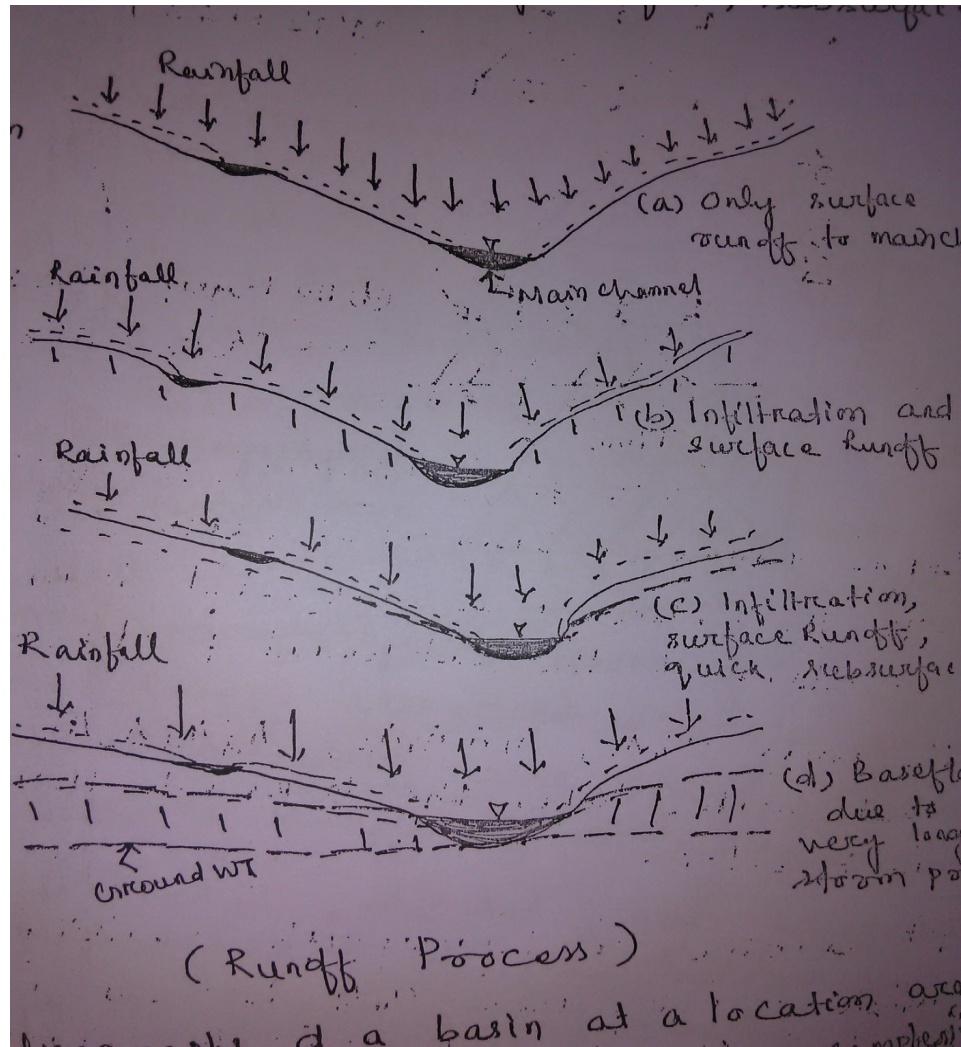 Rainfall
(a) Only surface
runoff to main ch
Main channel
Rainfall
(b) Infiltration and
surface Runoff
Rainfall
(c) Infiltration,
surface Runoff,
quick subsurface
Rainfall
(d) Baseflo
due to
very long
storm po
Ground WT
(Runoff Process)
of a basin at a location are